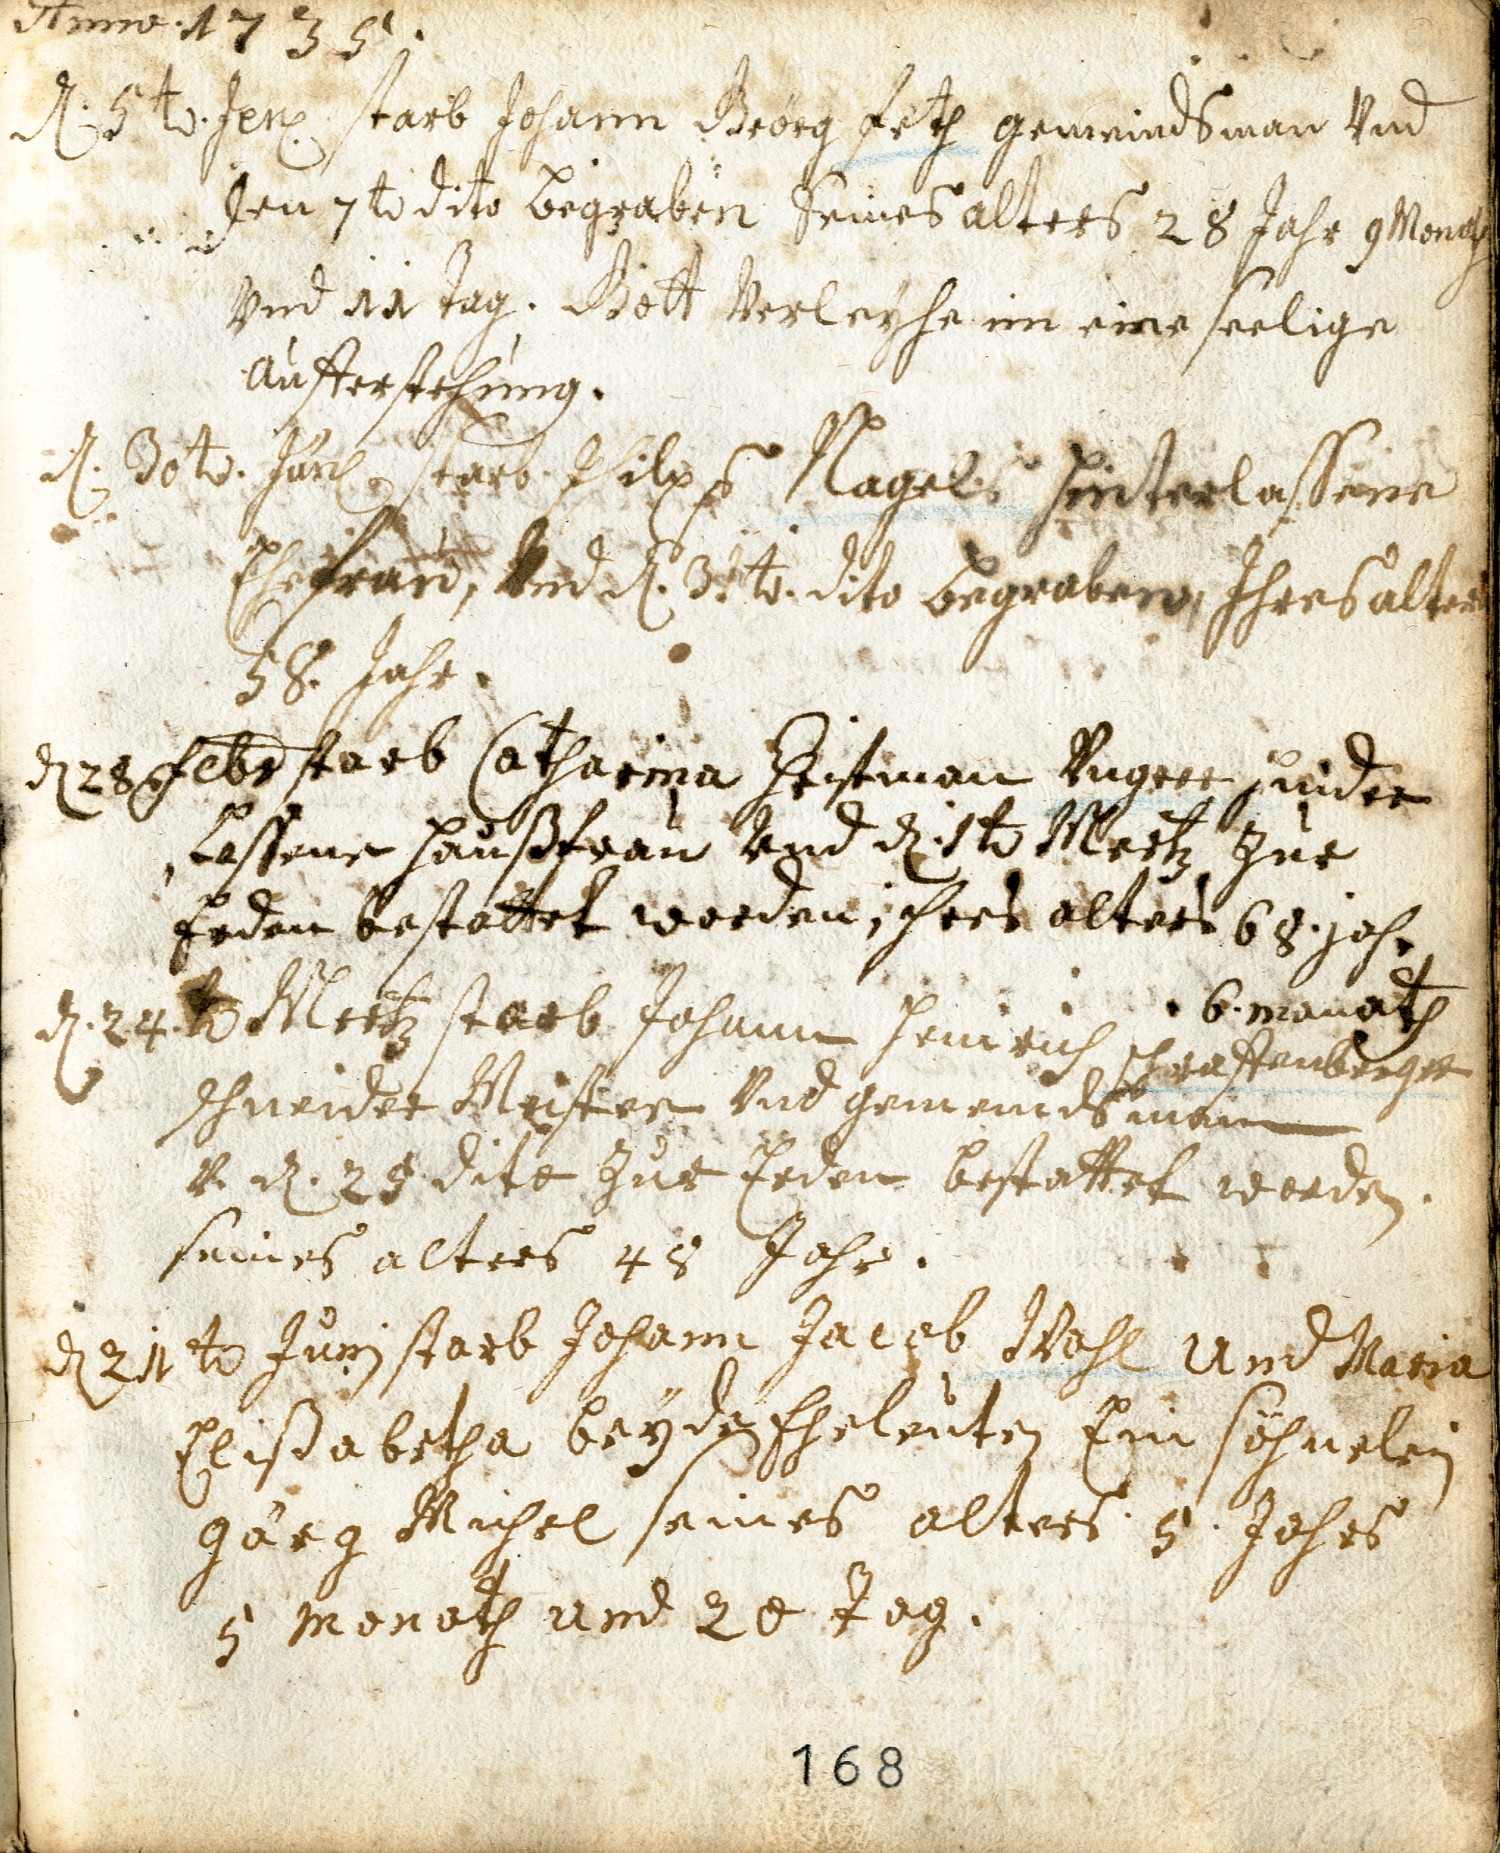 Anno 1735.
d. 5 t. Jen. starb Johann Georg Feth gemeindsman Vnd
den 7 t dito begraben Seines alters 28 Jahr 9 Monath
Vnd 11 tag. Gott Verleyhe im eine seelige
aufferstehung.
d. 30 t. Jan. starb Philips Nagels hinterlassene
Ehefrau, Vnd d. t. dito begraben, Ihres alters
58. Jahr.
d 28 Febr starb Catharina hinder
lassene haußfrau Vnd d. 1 t Mertz Zur
Erden bestattet worden, ihres alters 68. jahr
6. monath
d. 24. t Mertz starb Johann Henrich
schneider Meister Vnd gemeindsman
V. d. 28 dito Zur Erden bestattet worden.
seines alters 48 Jahr.
d 21 t Junj starb Johann Jacob Wahl und Maria
Elißabetha beyde Eheleuten Ein söhnelein
görg Michel seines alters 5. Jahrs
5 monath und 20 tag.
168